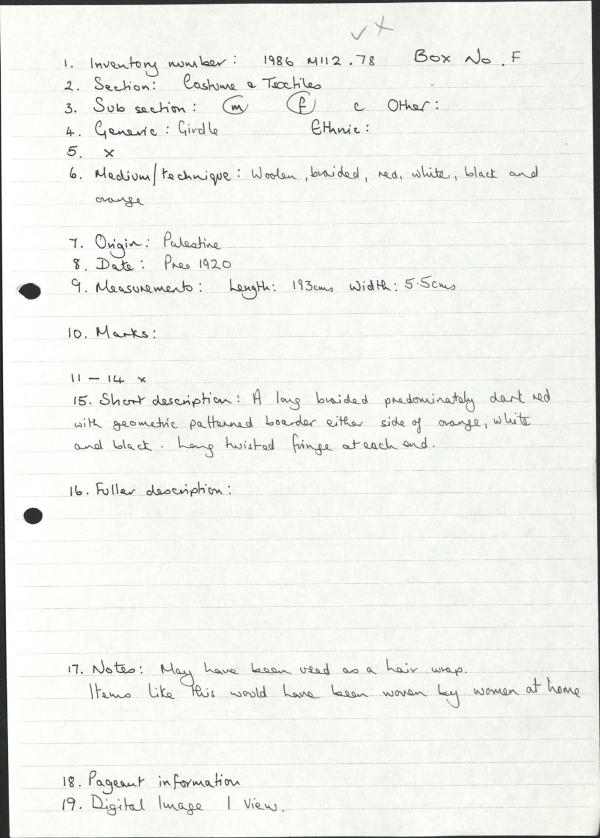 ✓ x
1. Inventory number: 1986 M112.78 Box No. F
2. Section: Costume & Textiles
3. Sub section: m f c Other:
4. Generic: Girdle Ethnic:
5. x
6. Medium/technique: Woolen, braided, red, white, black and
orange
7. Origin: Palestine
8. Date: Pre 1920
9. Measurements: Length: 193cms Width: 5.5cms
10. Marks:
11 – 14 x
15. Short description: A long braided predominately dark red
with geometric patterned boarder either side of orange, white
and black. Long twisted fringe at each end.
16. Fuller description:
17. Notes: May have been used as a hair wrap.
Items like this would have been woven by women at home
18. Pageant information
19. Digital Image 1 View.